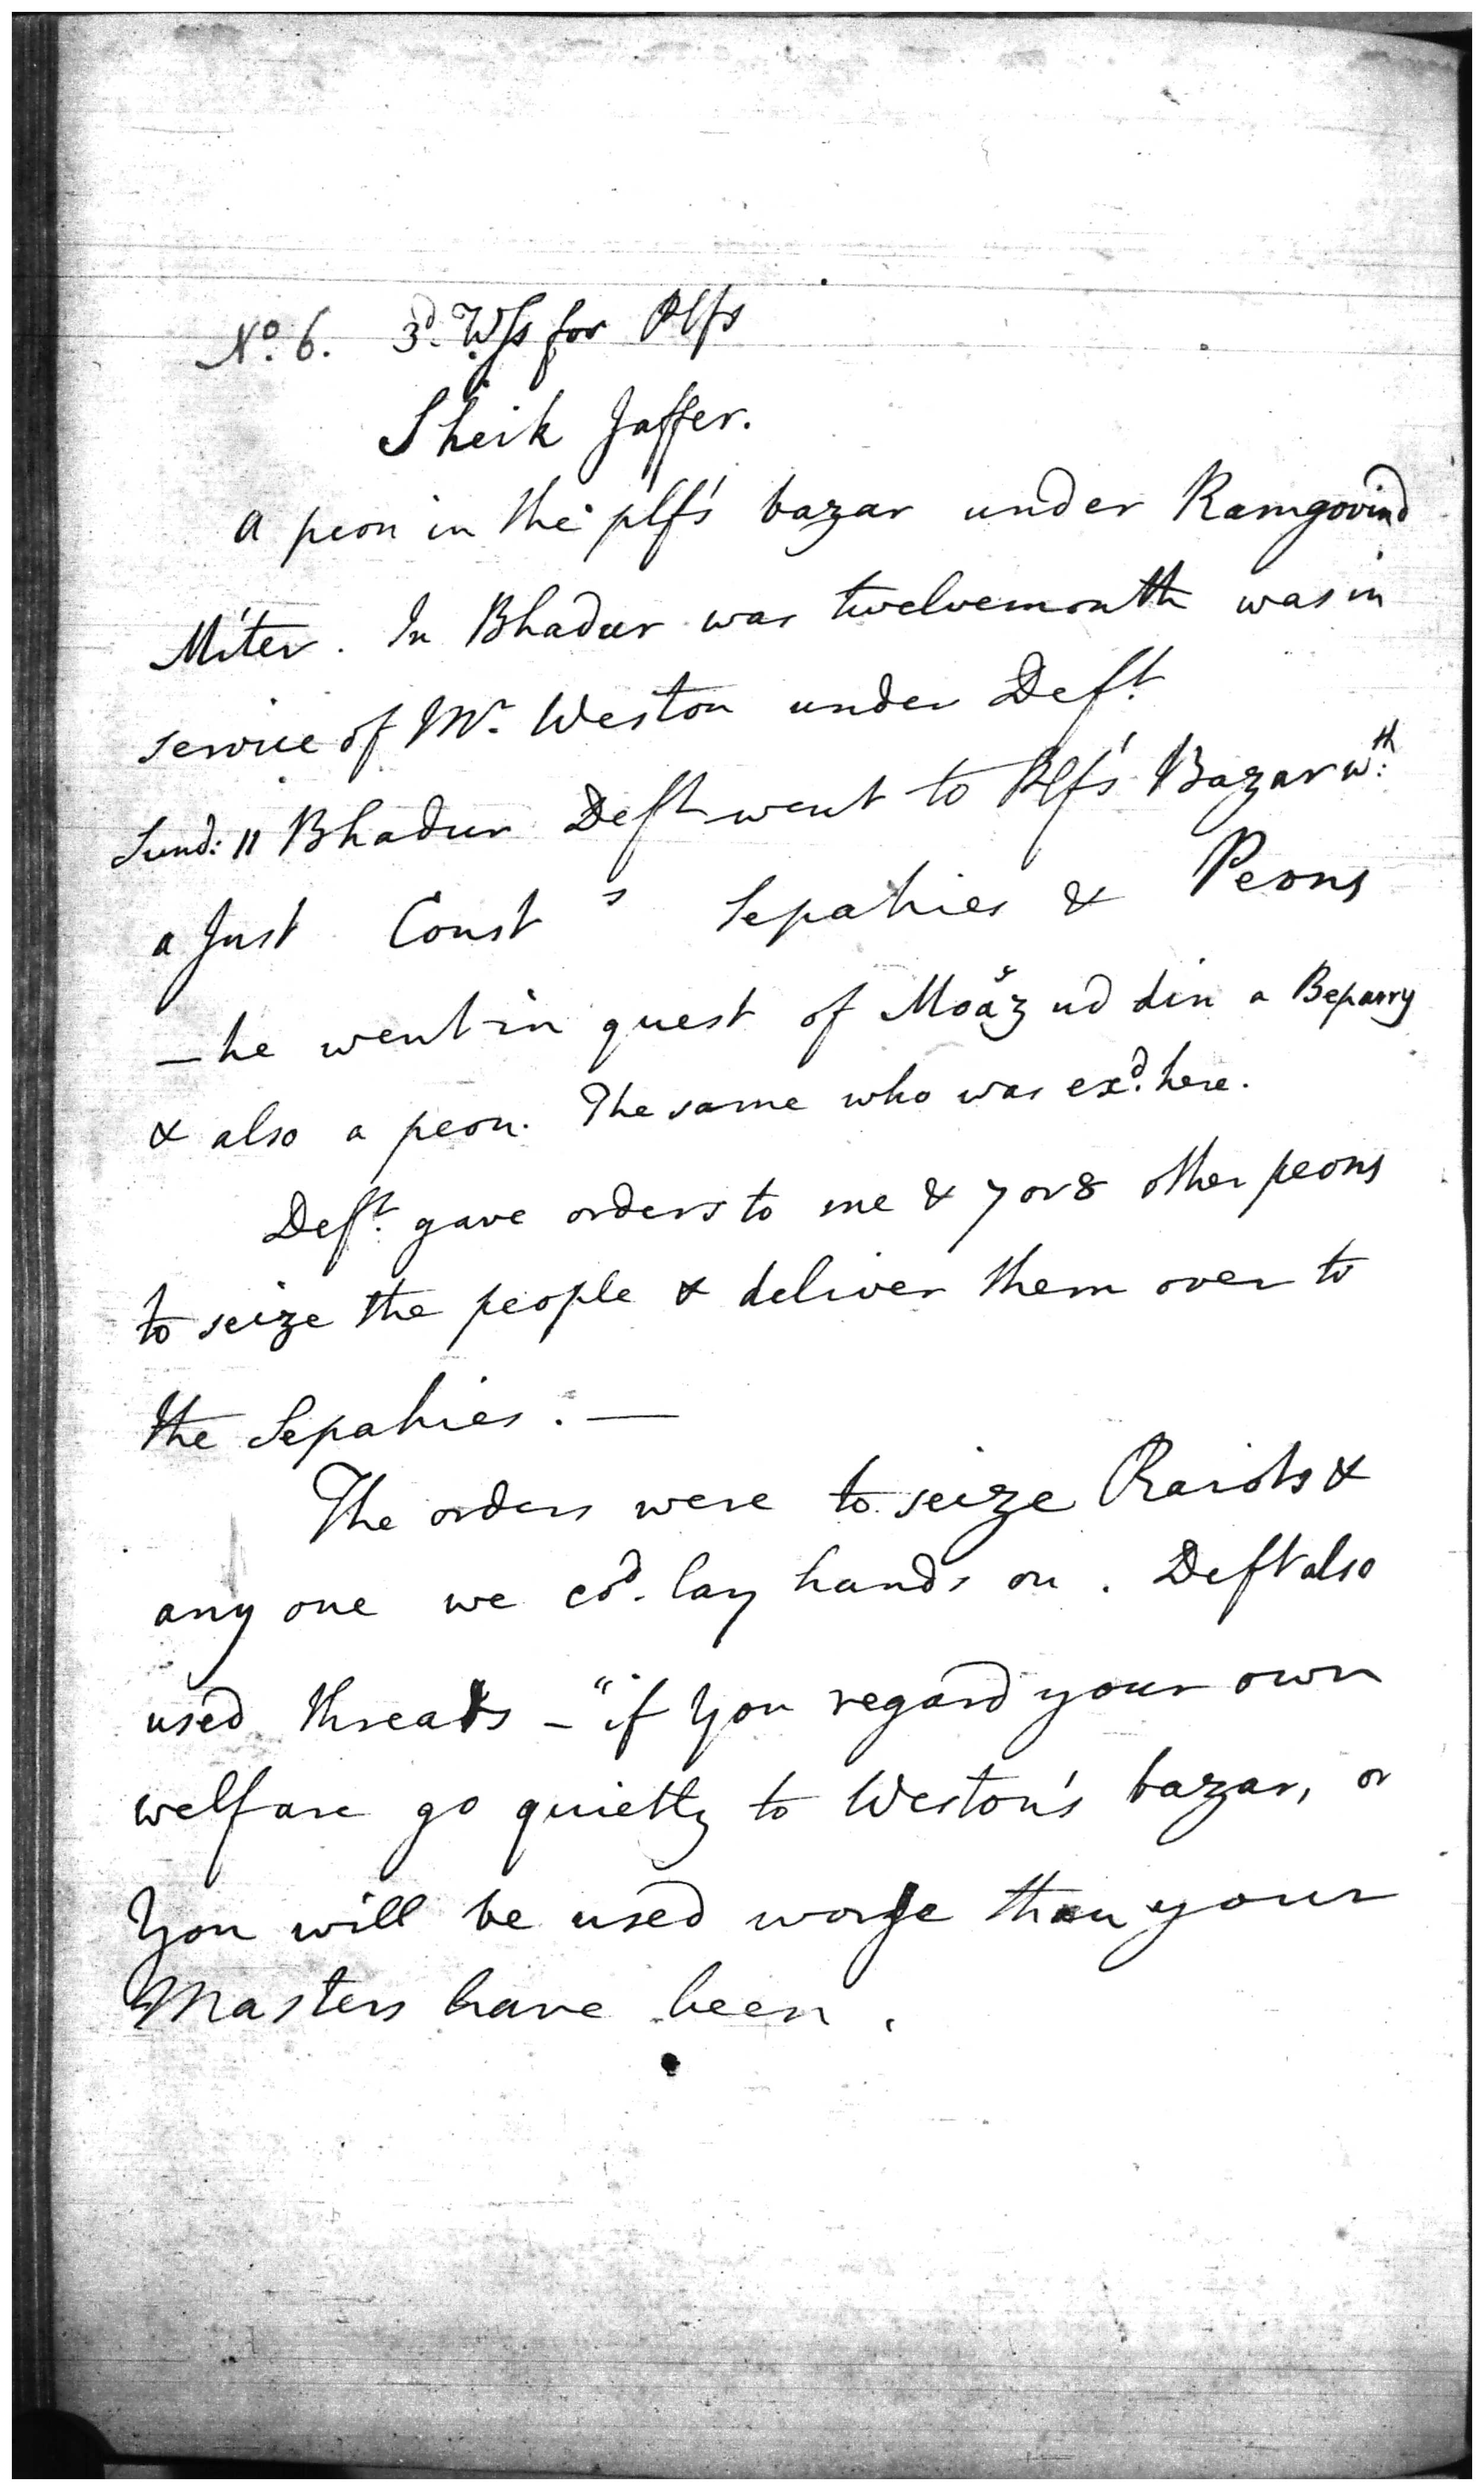 No. 6. 3d. Wss for Plfs
Sheik Jaffer.
A peon in the plf's bazar under Ramgovind
Miter. In Bhadur was twelvemonth was in
service of Mr. Weston under Deft.
Sund: 11 Bhadur Deft went to Plf's Bazar wth:
a Just Const s Sepahies & Peons
— he went in quest of Moaz ud din a Beparry
& also a peon. The same who was exd. here.
Deft. gave orders to me & 7 or 8 other peons
to seize the people & deliver them over to
the Sepahies. —
The orders were to seize Raiots &
any one we cod. lay hands on. Deft also
used threats - "if you regard your own
welfare go quietly to Weston's bazar, or
you will be used worse than your
Masters have been.